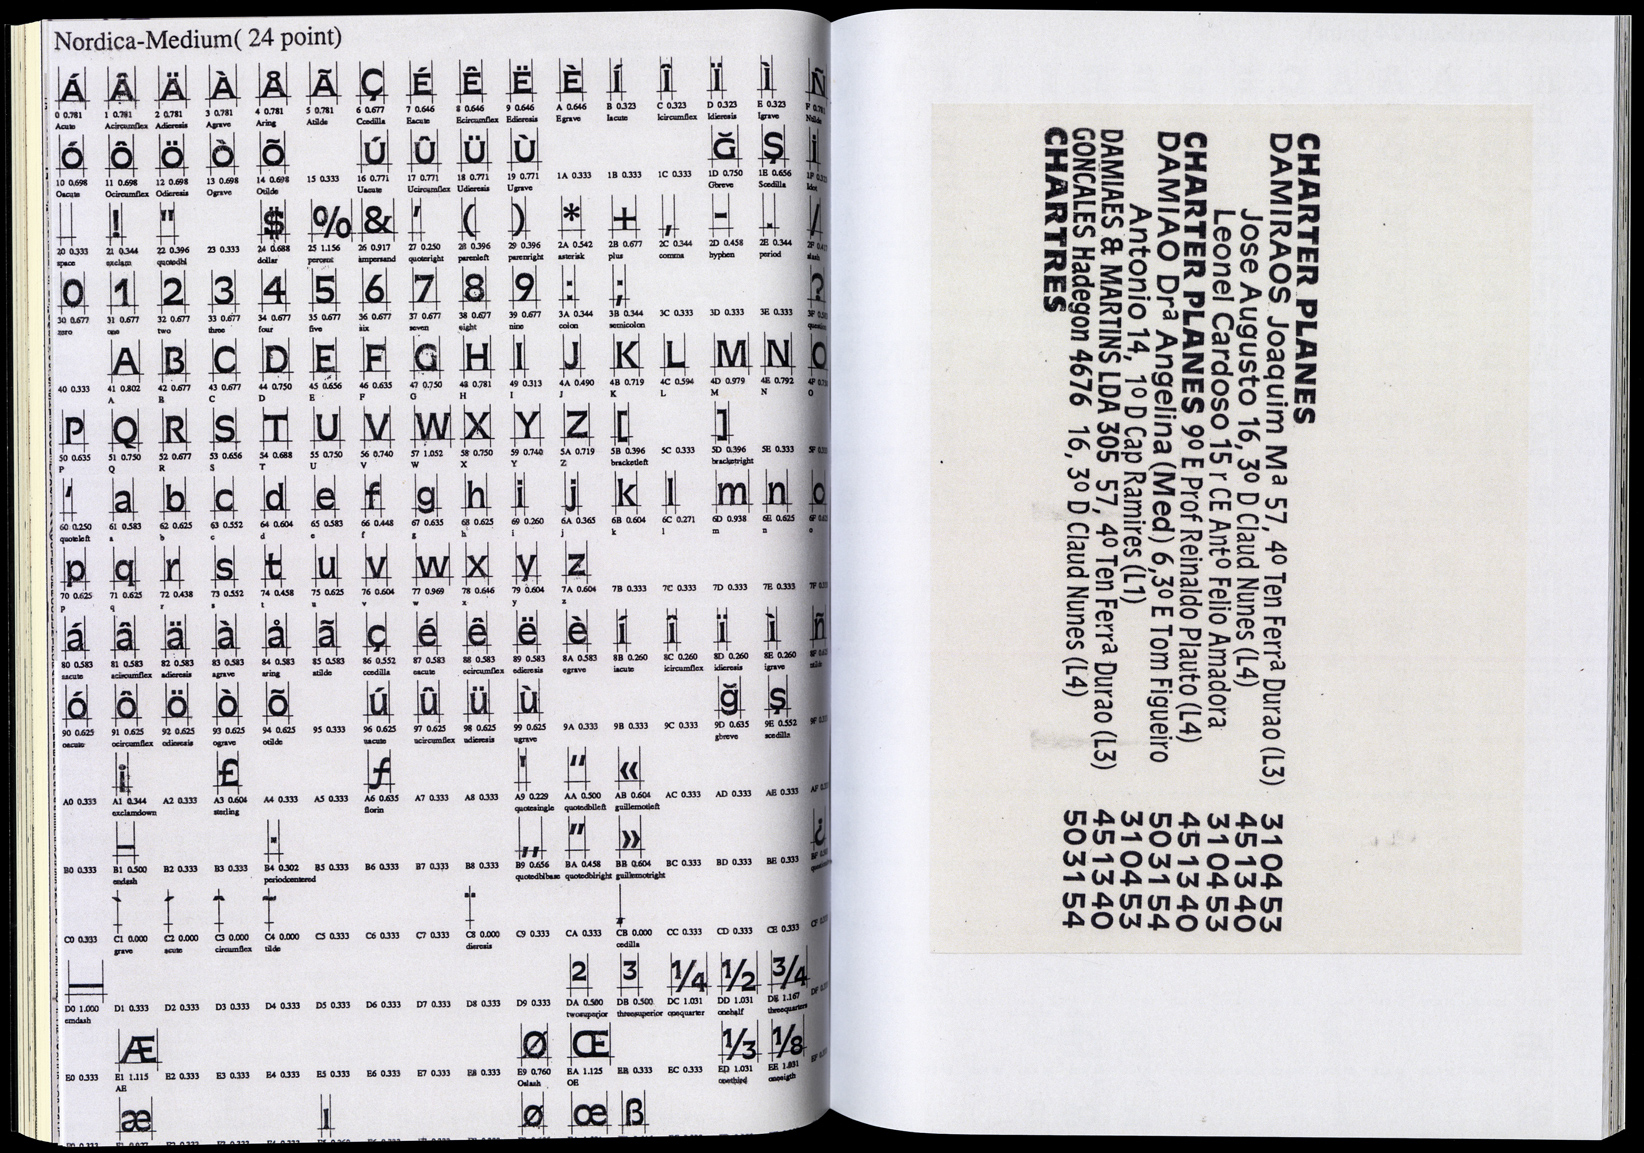 Nordica-Medium( 24 point)
Á Â Ä À Å Ã Ç É Ê Ë È Í Î Ï Ì Ñ
0 0.781 1 0.781 2 0.781 3 0.781 4 0.781 5 0.781 6 0.677 7 0.646 8 0.646 9 0.646 A 0.646 B 0.323 C 0.323 D 0.323 E 0.323
Aacute Acircumflex Adieresis Agrave Aring Atilde Ccedilla Eacute Ecircumflex Edieresis Egrave Iacute Icircumflex Idieresis Igrave
Ó Ô Ö Ò Õ Ú Û Ü Ù Ğ Ş İ
10 0.698 11 0.698 12 0.698 13 0.698 14 0.698 15 0.333 16 0.771 17 0.771 18 0.771 19 0.771 1A 0.333 1B 0.333 1C 0.333 1D 0.750 1E 0.656
Oacute Ocircumflex Odieresis Ograve Otilde Uacute Ucircumflex Udieresis Ugrave Gbreve Scedilla
! " $ % & ’ ( ) * + , - . /
20 0.333 21 0.344 22 0.396 23 0.333 24 0.688 25 1.156 26 0.917 27 0.250 28 0.396 29 0.396 2A 0.542 2B 0.677 2C 0.344 2D 0.458 2E 0.344
space exclam quotedbl dollar percent ampersand quoteright parenleft parenright asterisk plus comma hyphen period
0 1 2 3 4 5 6 7 8 9 : ; ?
30 0.677 31 0.677 32 0.677 33 0.677 34 0.677 35 0.677 36 0.677 37 0.677 38 0.677 39 0.677 3A 0.344 3B 0.344 3C 0.333 3D 0.333 3E 0.333
zero one two three four five six seven eight nine colon semicolon
A B C D E F G H I J K L M N O
40 0.333 41 0.802 42 0.677 43 0.677 44 0.750 45 0.656 46 0.635 47 0.750 48 0.781 49 0.313 4A 0.490 4B 0.719 4C 0.594 4D 0.979 4E 0.792
A B C D E F G H I J K L M N O
P Q R S T U V W X Y Z [ ]
50 0.635 51 0.750 52 0.677 53 0.656 54 0.688 55 0.750 56 0.740 57 1.052 58 0.750 59 0.740 5A 0.719 5B 0.396 5C 0.333 5D 0.396 5E 0.333
P Q R S T U V W X Y Z bracketleft bracketright
‘ a b c d e f g h i j k l m n o
60 0.250 61 0.583 62 0.625 63 0.552 64 0.604 65 0.583 66 0.448 67 0.635 68 0.625 69 0.260 6A 0.365 6B 0.604 6C 0.271 6D 0.938 6E 0.625
quoteleft a b c d e f g h i j k l m n o
p q r s t u v w x y z
70 0.625 71 0.625 72 0.438 73 0.552 74 0.458 75 0.625 76 0.604 77 0.969 78 0.646 79 0.604 7A 0.604 7B 0.333 7C 0.333 7D 0.333 7E 0.333
p q r s t u v w x y z
á â ä à å ã ç é ê ë è í î ï ì ñ
80 0.583 81 0.583 82 0.583 83 0.583 84 0.583 85 0.583 86 0.552 87 0.583 88 0.583 89 0.583 8A 0.583 8B 0.260 8C 0.260 8D 0.260 8E 0.260
aacute acircumflex adieresis agrave aring atilde ccedilla eacute ecircumflex edieresis egrave iacute icircumflex idieresis igrave ntilde
ó ô ö ò õ ú û ü ù ğ ş
90 0.625 91 0.625 92 0.625 93 0.625 94 0.625 95 0.333 96 0.625 97 0.625 98 0.625 99 0.625 9A 0.333 9B 0.333 9C 0.333 9D 0.635 9E 0.552
oacute ocircumflex odieresis ograve otilde uacute ucircumflex udieresis ugrave gbreve scedilla
¡ £ ƒ ' “ «
A0 0.333 A1 0.344 A2 0.333 A3 0.604 A4 0.333 A5 0.333 A6 0.635 A7 0.333 A8 0.333 A9 0.229 AA 0.500 AB 0.604 AC 0.333 AD 0.333 AE 0.333
exclamdown sterling florin quotesingle quotedblleft guillemotleft
– · „ ” » ¿
B0 0.333 B1 0.500 B2 0.333 B3 0.333 B4 0.302 B5 0.333 B6 0.333 B7 0.333 B8 0.333 B9 0.656 BA 0.458 BB 0.604 BC 0.333 BD 0.333 BE 0.333
endash periodcentered quotedblbase quotedblright guillemotright
C0 0.333 C1 0.000 C2 0.000 C3 0.000 C4 0.000 C5 0.333 C6 0.333 C7 0.333 C8 0.000 C9 0.333 CA 0.333 CB 0.000 CC 0.333 CD 0.333 CE 0.333
grave acute circumflex tilde dieresis cedilla
— 2 3 1/4 1/2 3/4
D0 1.000 D1 0.333 D2 0.333 D3 0.333 D4 0.333 D5 0.333 D6 0.333 D7 0.333 D8 0.333 D9 0.333 DA 0.500 DB 0.500 DC 1.031 DD 1.031 DE 1.167
emdash twosuperior threesuperior onequarter onehalf threequarters
Æ Ø Œ 1/3 1/8
E0 0.333 E1 1.115 E2 0.333 E3 0.333 E4 0.333 E5 0.333 E6 0.333 E7 0.333 E8 0.333 E9 0.760 EA 1.125 EB 0.333 EC 0.333 ED 1.031 EE 1.031
AE Oslash OE onethird oneeigth
æ ı ø œ ß
CHARTER PLANES
DAMIRAOS Joaquim M a 57, 4º Ten Ferra Durao (L3) 310453
Jose Augusto 16, 3º D Claud Nunes (L4) 451340
Leonel Cardoso 15 r CE Antº Felio Amadora 310453
CHARTER PLANES 9º E Prof Reinaldo Plauto (L4) 451340
DAMIAO Drª Angelina (Med) 6,3º E Tom Figueiro 503154
Antonio 14, 1º D Cap Ramires (L1) 310453
DAMIAES & MARTINS LDA 305 57, 4º Ten Ferra Durao (L3) 451340
GONCALES Hadegon 4676 16, 3º D Claud Nunes (L4) 503154
CHARTRES